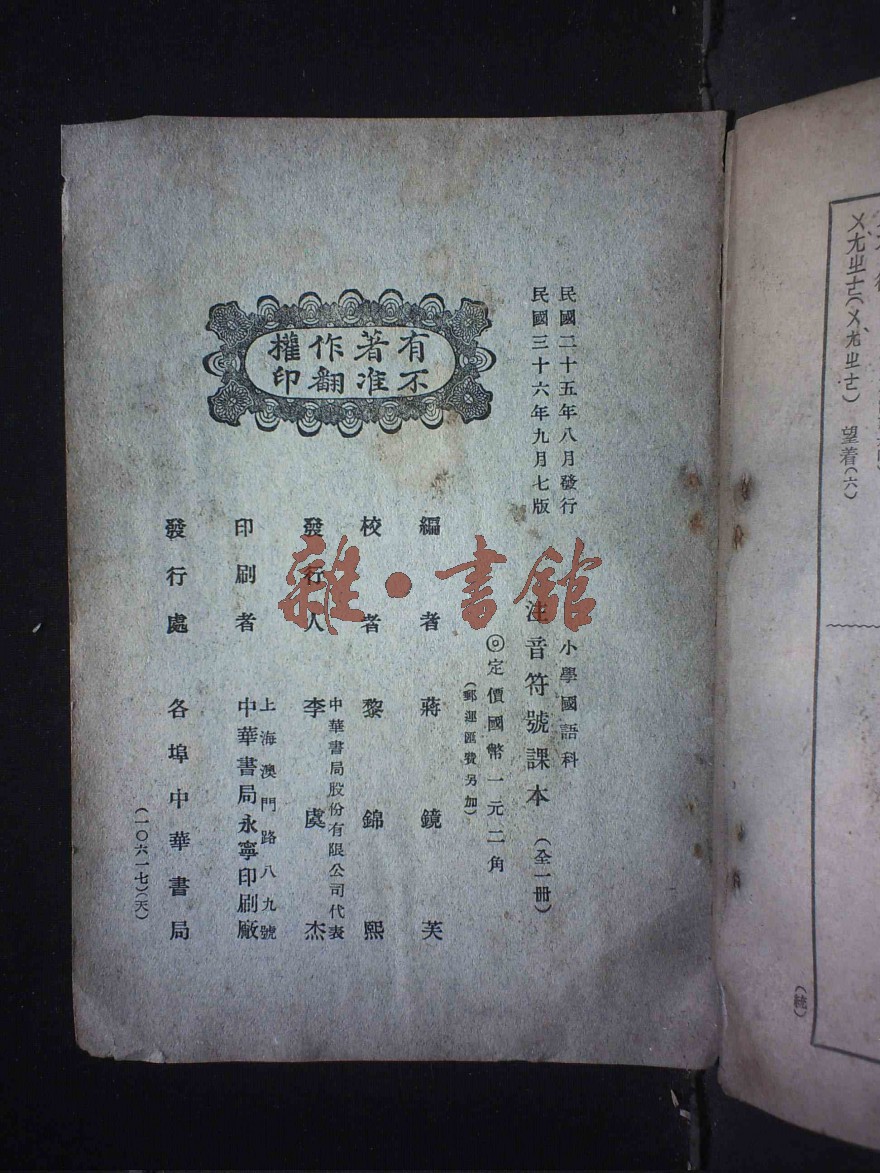 民國二十五年八月發行
民國三十六年九月七版
小學國語科
注音符號課本（全一冊）
◎定價國幣一元二角
（郵運匯費另加）
有著作權
不准翻印
編者 蔣鏡芙
校者 黎錦熙
發行人 中華書局股份有限公司代表
李虞杰
印刷者 上海澳門路八九號
中華書局永寧印刷廠
發行處 各埠中華書局
（一〇六一七）（天）
雜·書館
ㄨㄤㄓㄜ(ㄨㄤㄓㄜ) 望着(六)